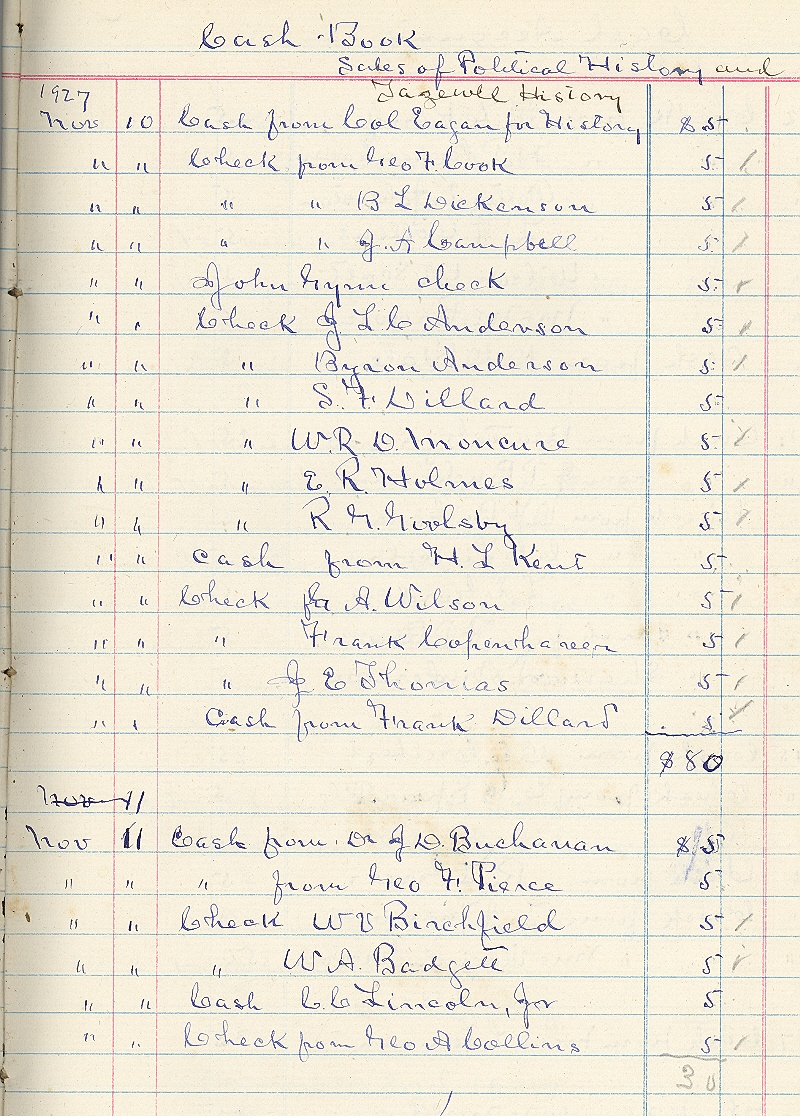 Cash Book
Sales of Political History and
Tazewell History
1927
Nov 10 Cash from Col Eagan for History $ 5
" " Check from Geo F. Cook 5
" " " " B L Dickenson 5
" " " " J. A Campbell 5
" " John Gynn check 5
" " Check J L C Anderson 5
" " " Byron Anderson 5
" " " S. F. Dillard 5
" " " W. R. D. Moncure 5
" " " E. R. Holmes 5
" " " R G. Goolsby 5
" " Cash from H. L Kent 5
" " Check A. Wilson 5
" " " Frank Copenhaver 5
" " " J E Thomas 5
" " Cash from Frank Dillard 5
$80
Nov 11
Nov 11 Cash from Dr J D. Buchanan $ 5
" " " from Geo F. Pierce 5
" " Check W V Birchfield 5
" " " W. A. Badgett 5
" " Cash C. C Lincoln, Jr 5
" " Check from Geo A Collins 5
30